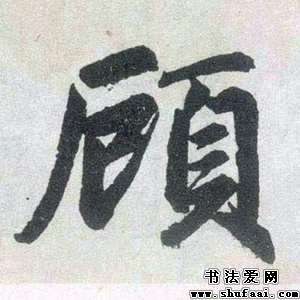 顾
书法爱网
www.shufaai.com